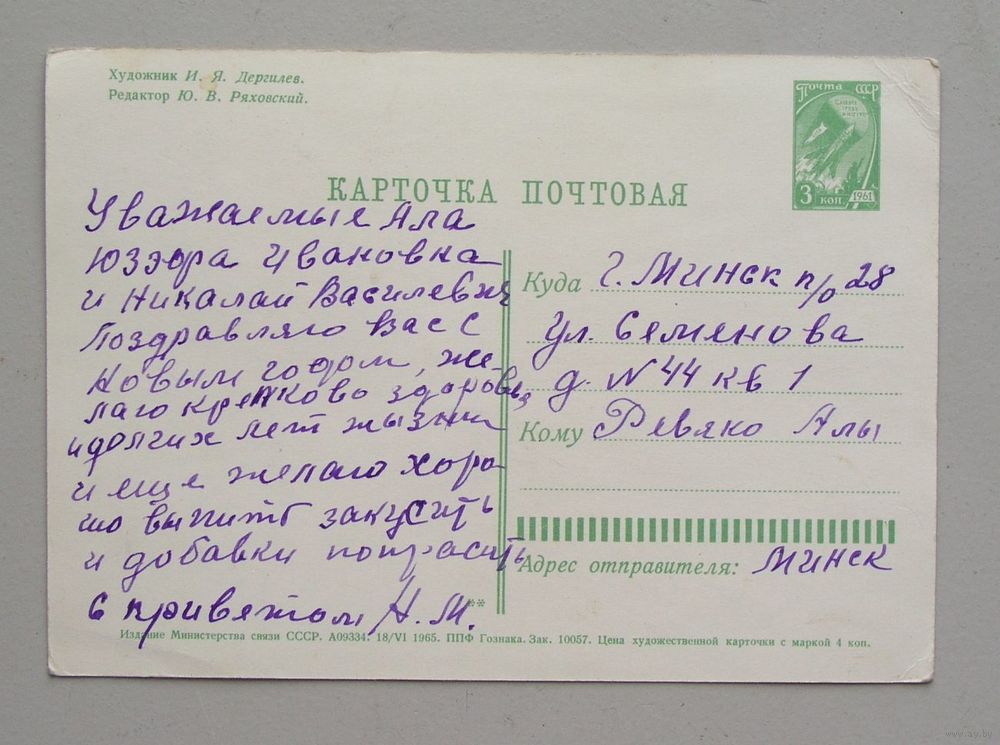 Художник И. Я. Дергилев.
Редактор Ю. В. Ряховский.
Почта СССР
3 коп. 1961
КАРТОЧКА ПОЧТОВАЯ
Уважаемые Ала
Юзэфа Ивановна
и Николай Василевич
Поздравляю Вас с
Новым годом, же-
лаю крепково здоровья
и долгих лет жызни
и еще желаю хоро
шо выпить закусить
и добавки попрасить
С приветом Н. М.
Куда г. Минск п/о 28
ул. Семенова
д. N 44 кв 1
Кому Ревяко Алы
Адрес отправителя: Минск
**
Издание Министерства связи СССР. А09334. 18/VI 1965. ППФ Гознака. Зак. 10057. Цена художественной карточки с маркой 4 коп.
www.ay.by